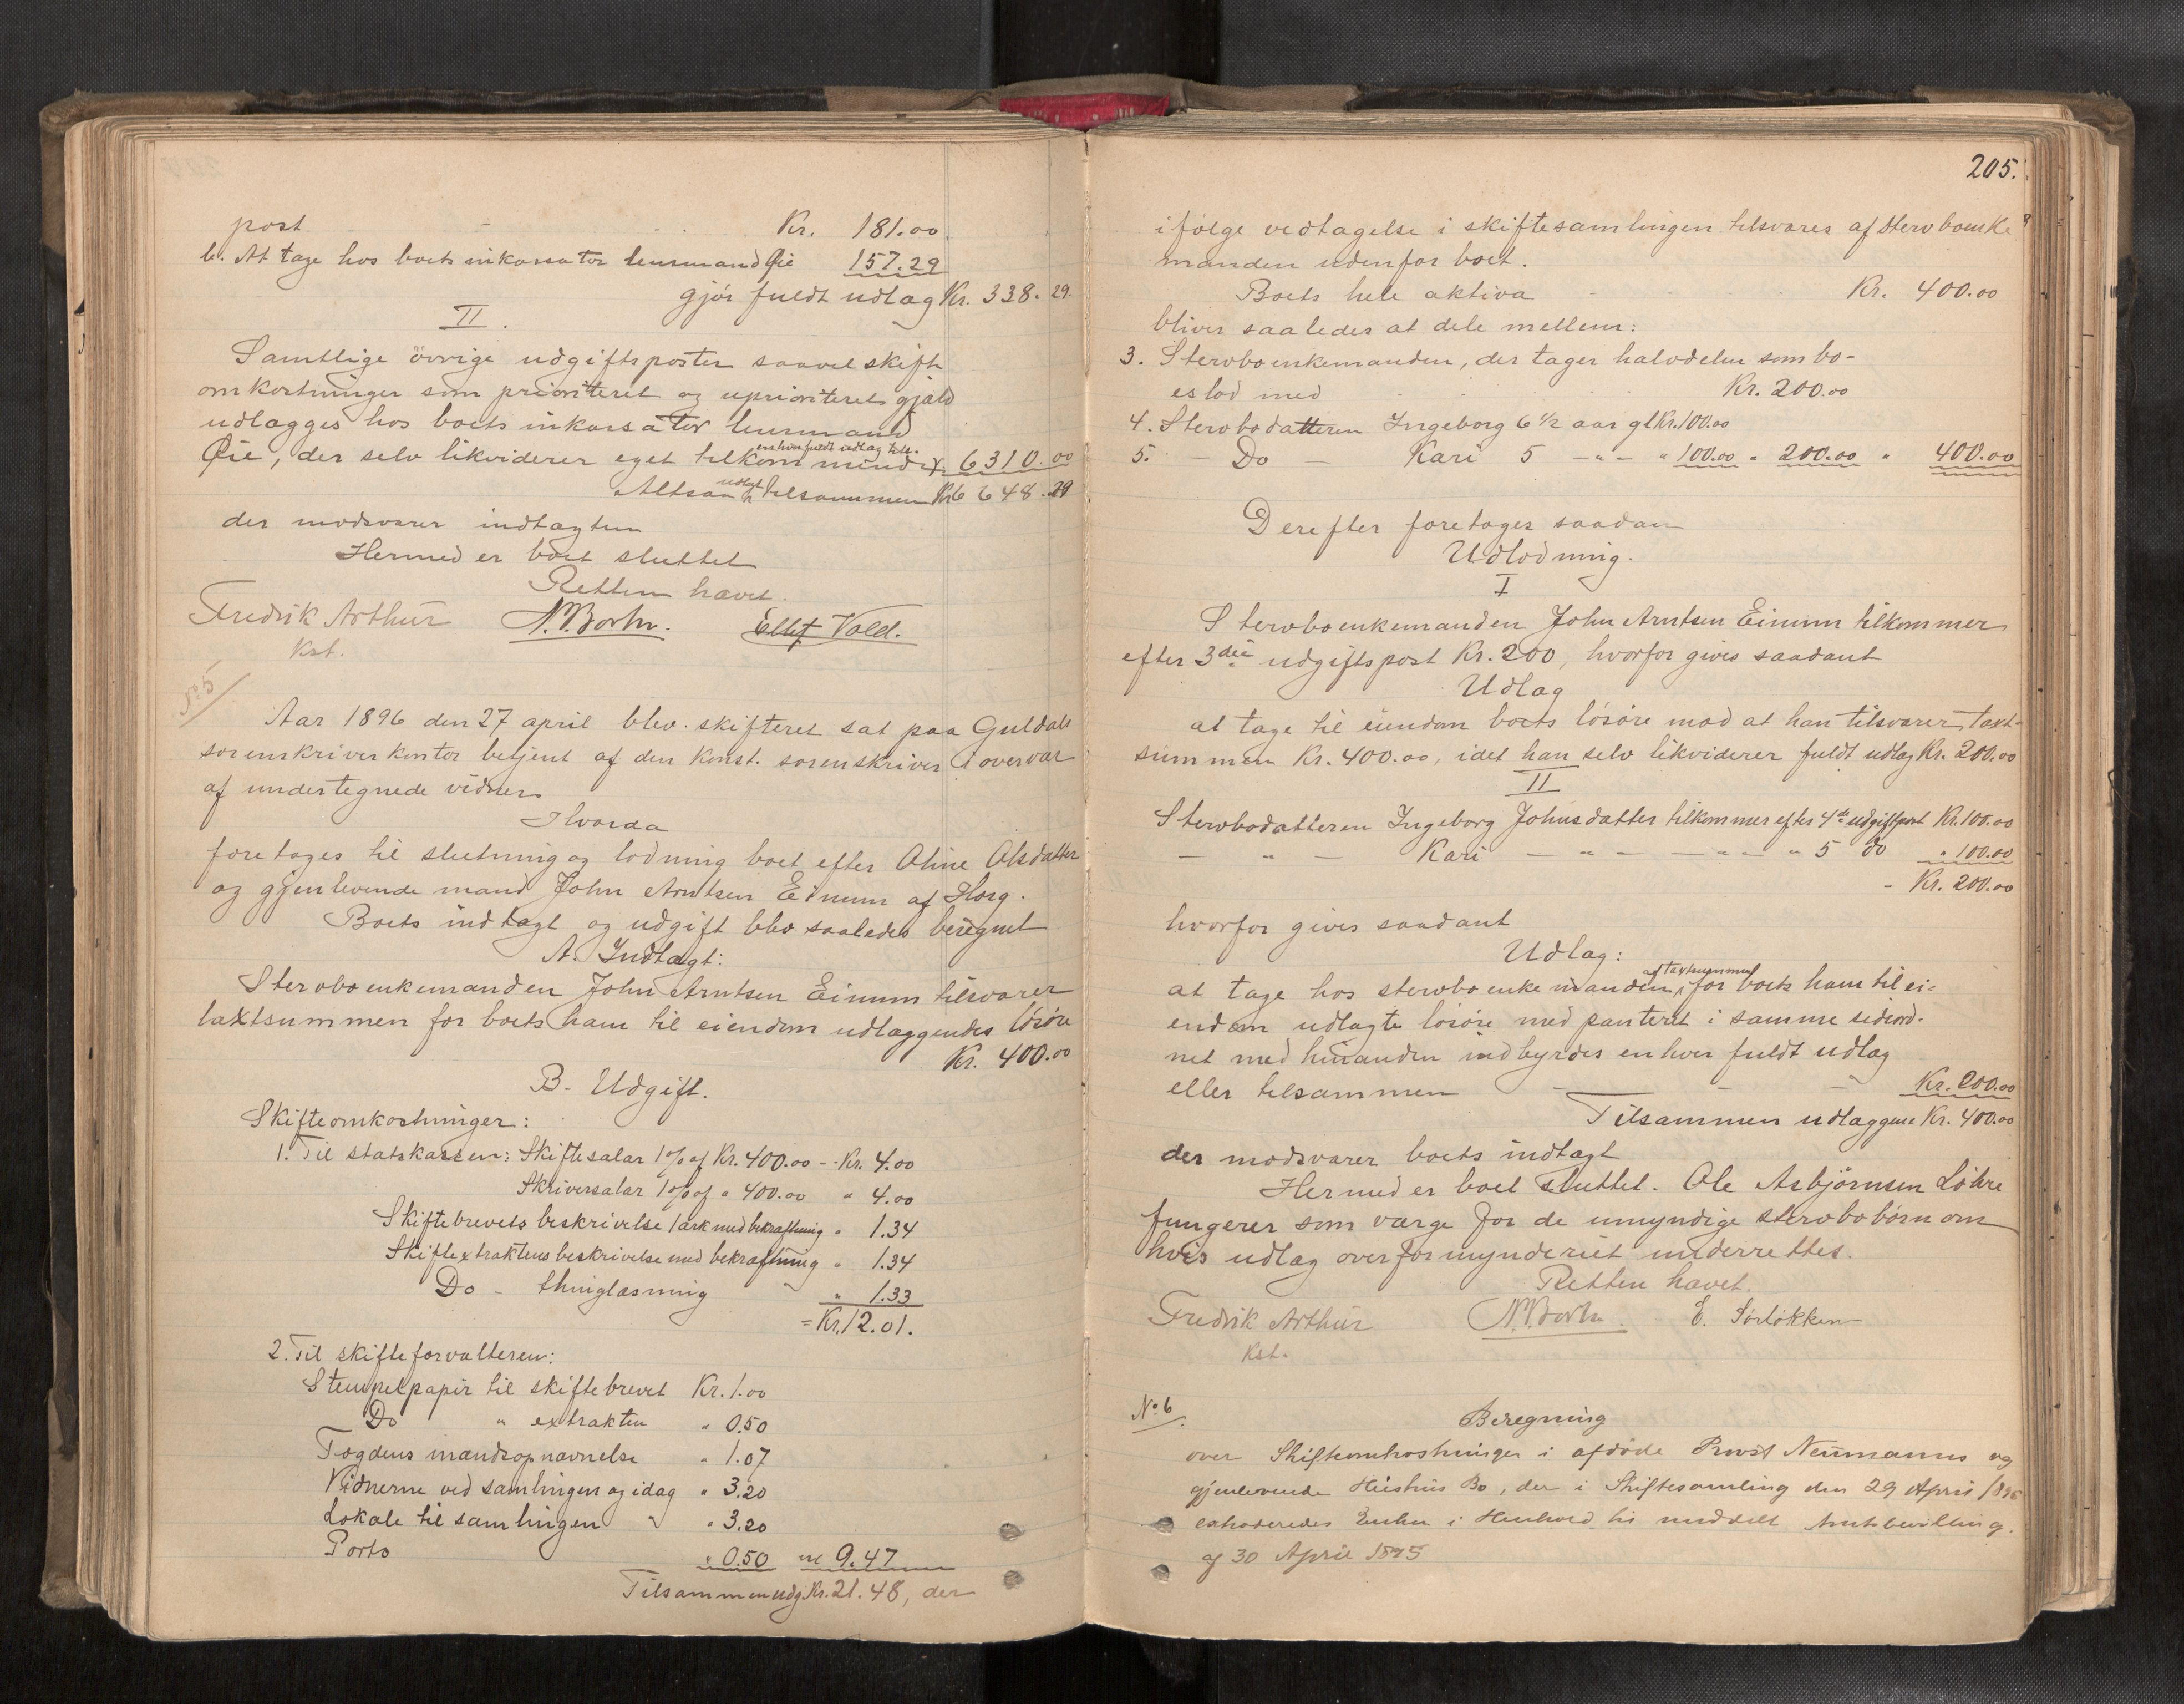 post Kr. 181.00
b. At tage hos boets inkassator lensmand Øie 157.29
gjør fuldt udlag Kr. 338.29.
II.
Samtlige øvrige udgiftsposter saavel skifte
omkostninger som prioriteret og uprioriteret gjæld
udlægges hos boets inkassator lensmand
enhver fuldt udlag
Øie, der selv likviderer eget tilkommende 6310.00
Altsaa udlagt tilsammen Kr. 6648.29
der modsvarer indtægten
Hermed er boet sluttet
Retten hævet.
Fredrik Arthur N. Borhn. Ellef Vold.
Kst.
No. 5
Aar 1896 den 27 april blev skifteret sat paa Guldals
sorenskriverkontor betjent af den konst. sorenskriver i overvær
af undertegnede vidner
Hvorda
foretages til slutning og lodning boet efter Oline Olsdatter
og gjenlevende mand John Arntsen Einum af Horg.
Boets indtægt og udgift blev saaledes beregnet
A. Indtægt:
Stervboenkemanden John Arntsen Einum tilsvarer
taxtsummen for boets ham til eiendom udlæggendes løsøre
Kr. 400.00
B. Udgift.
Skifteomkostninger:
1. Til statskassen: Skiftesalær 1% af Kr. 400.00 - Kr. 4.00
Skriversalær 1% af " 400.00 " 4.00
Skiftebrevets beskrivelse 1 ark med bekræftning " 1.34
Skifteextraktens beskrivelse med bekræftning " 1.34
Do - thinglæsning " 1.33
= Kr. 12.01.
2. Til skifteforvalteren:
Stempelpapir til skiftebrevet Kr. 1.00
Do " extrakten " 0.50
Fogdens mandsopnævnelse " 1.07
Vidnerne ved samlingen og idag " 3.20
Lokale til samlingen " " 3.20
Porto " 0.50 = " 9.47
Tilsammen udg. Kr. 21.48, der
205.
ifølge vedtagelse i skiftesamlingen tilsvares af stervboenke
manden udenfor boet.
Boets hele aktiva Kr. 400.00
bliver saaledes at dele mellem:
3. Stervboenkemanden, der tager halvdelen som bo-
eslod med Kr. 200.00
4. Stervbodatteren Ingeborg 6 1/2 aar gl. Kr. 100.00
5. - Do - Kari 5 - " - " 100.00 " 200.00 " 400.00
Derefter foretages saadan
Udlodning.
I
Stervboenkemanden John Arntsen Einum tilkommer
efter 3die udgiftspost Kr. 200, hvorfor gives saadant
Udlæg
at tage til eiendom boets løsøre mod at han tilsvarer taxt-
summen Kr. 400.00, idet han selv likviderer fuldt udlæg Kr. 200.00
II
Stervbodatteren Ingeborg Johnsdatter tilkommer efter 4de udgiftspost Kr. 100.00
- " - Kari - " - - " - " 5 do " 100.00
- Kr. 200.00
hvorfor gives saadant
Udlæg:
af taxtsummen
at tage hos stervboenkemanden for boets ham til ei-
endom udlagte løsøre med panteret i samme sideord-
net med hinanden indbyrdes enhver fuldt udlæg
eller tilsammen - - - Kr. 200.00
Tilsammen udlæggene Kr. 400.00
der modsvarer boets indtægt
Hermed er boet sluttet. Ole Asbjørnsen Løhre
fungerer som værge for de umyndige stervbobørn om
hvis udlæg overformynderiet underrettes.
Retten hævet.
Fredrik Arthur N. Borhn. E. Sørløkken
Kst.
No. 6.
Beregning
over Skifteomkostninger i afdøde Provst Neumanns og
gjenlevende Bo, der i Skiftesamling den 29 April 1896
extraderedes Enken i Henhold til meddelt Amtsbevilling
af 30 April 1895